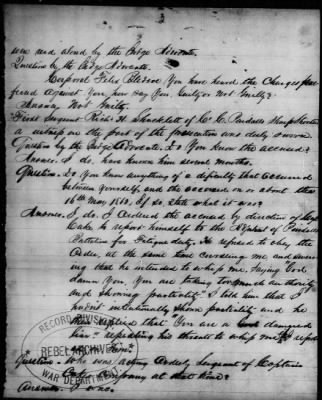 were read aloud by the Judge Advocate.
Question by the Judge Advocate.
Corporal Felix Gledson You have heard the Charges pre-
ferred against You, how say You, Guilty or Not Guilty?
Answer, Not Guilty.
First Sergeant Rich: H. Shacklett of Co. C. Pindall's Sharp Shooters
a witness on the part of the prosecution was duly sworn.
Question by the Judge Advocate. Do You know the accused?
Answer. I do. have known him several months.
Question. Do You know anything of a difficulty that occurred
between yourself, and the accused on or about the
16th May 1863. If so, state what it was?
Answer. I do. I ordered the accused by direction of Capt
Cake to report himself to the Hospital of Pindall's
Battalion for Fatigue duty. He refused to obey the
order, at the same time cursing me and swear-
ing that he intended to whip me, saying God
damn You, You are taking too much authority
and showing partiality. I told him that I
not intentionally show partiality and he
then replied that You are a damned
liar. repeating his threats to whip me
Question. Who was acting Orderly Sergeant of Captain
Company at that time?
Answer. I was.
RECORD DIVISION
REBEL ARCHIVES
WAR DEPARTMENT